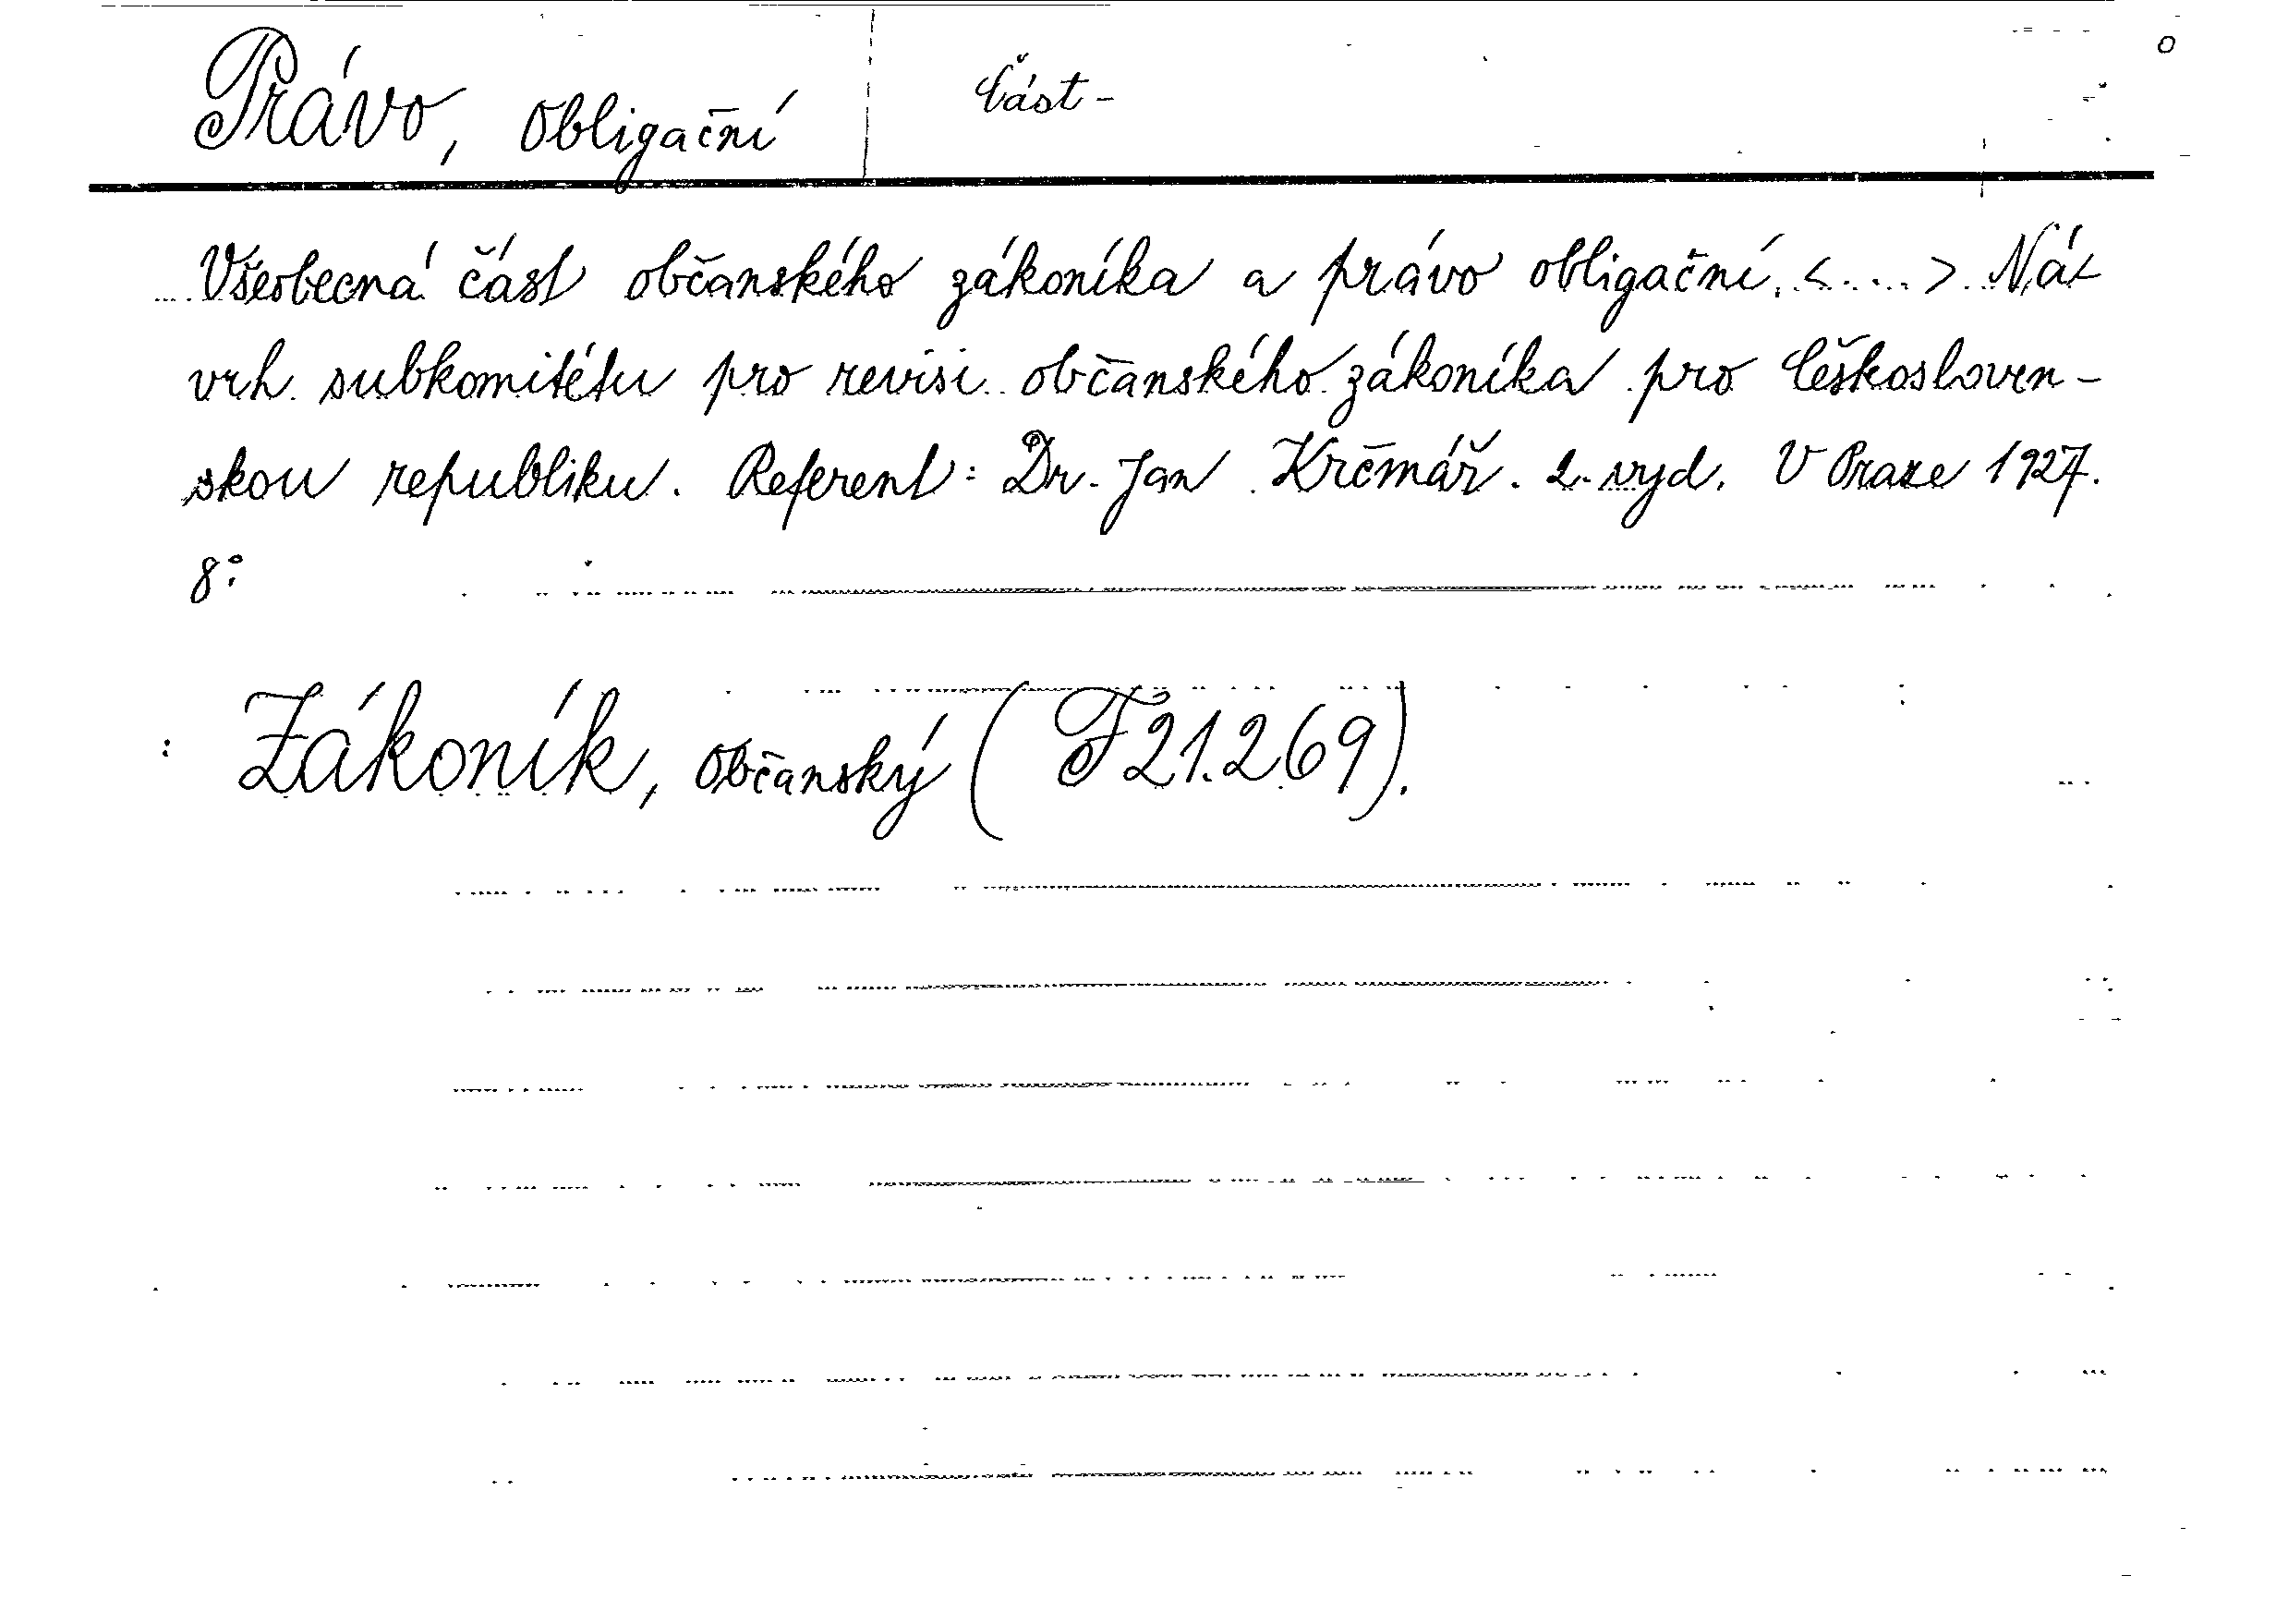 Právo, obligační
Část-
Všeobecná část občanského zákoníka a právo obligační. <....> Ná-
vrh subkomitétu pro revisi občanského zákoníka pro Českosloven-
skou republiku. Referent: Dr. Jan Krčmář. 2. vyd. V Praze 1927.
8°.
: Zákoník, občanský (F 21.269).